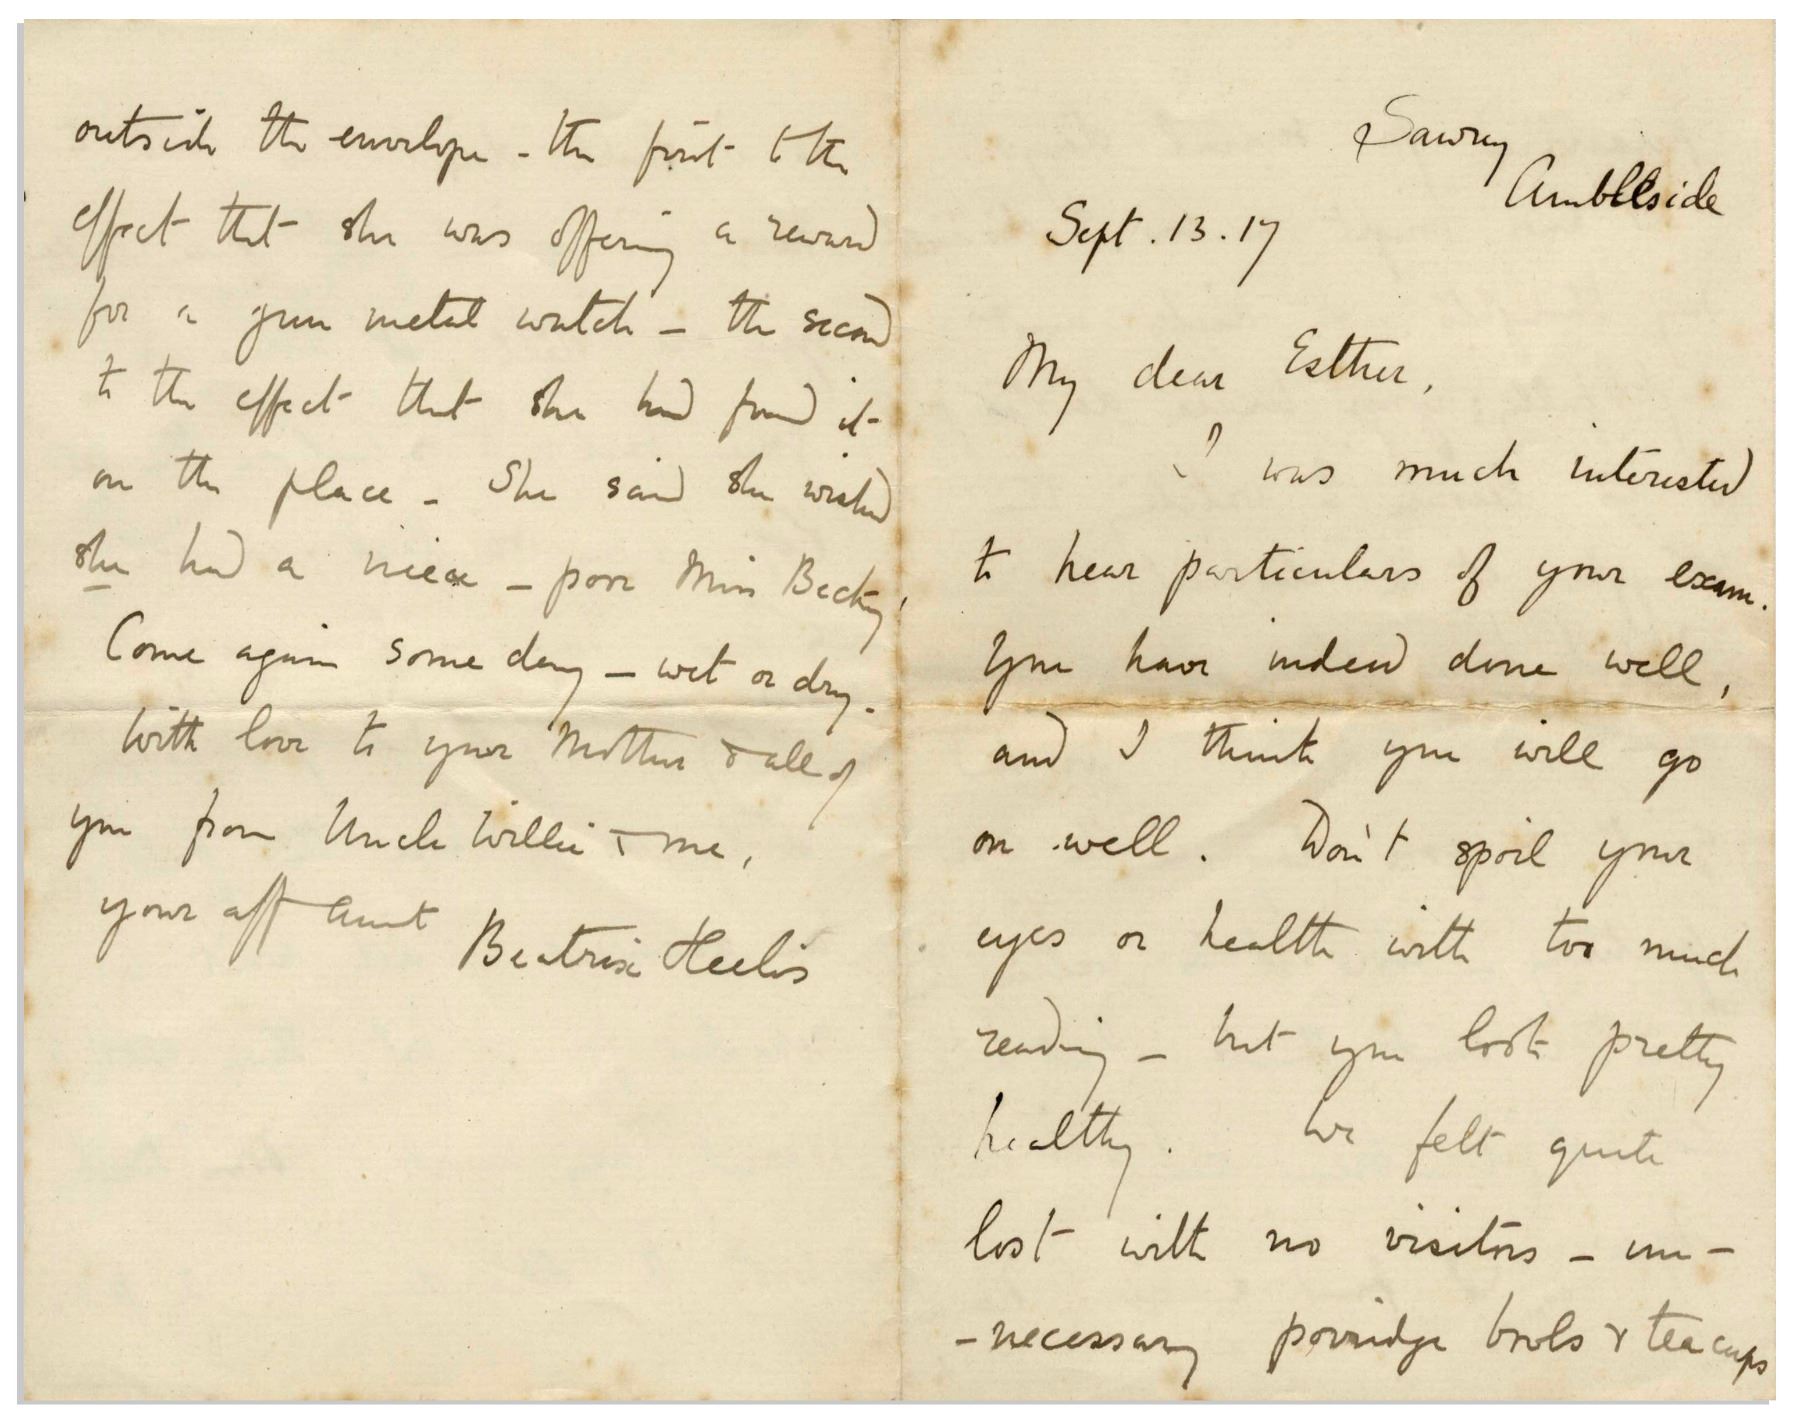 Sawrey
Ambleside
Sept. 13. 17
My dear Esther,
I was much interested
to hear particulars of your exam.
You have indeed done well,
and I think you will go
on well. Don't spoil your
eyes or health with too much
reading - but you look pretty
healthy. We felt quite
lost with no visitors - un-
-necessary porridge bowls & teacups
outside the envelope - the first to the
effect that she was offering a reward
for a gun metal watch - the second
to the effect that she had found it
on the place - She said she wished
she had a niece - poor Miss Becky,
Come again some day - wet or dry.
With love to your Mother & all of
you from Uncle Willie & me,
your aff aunt
Beatrix Heelis